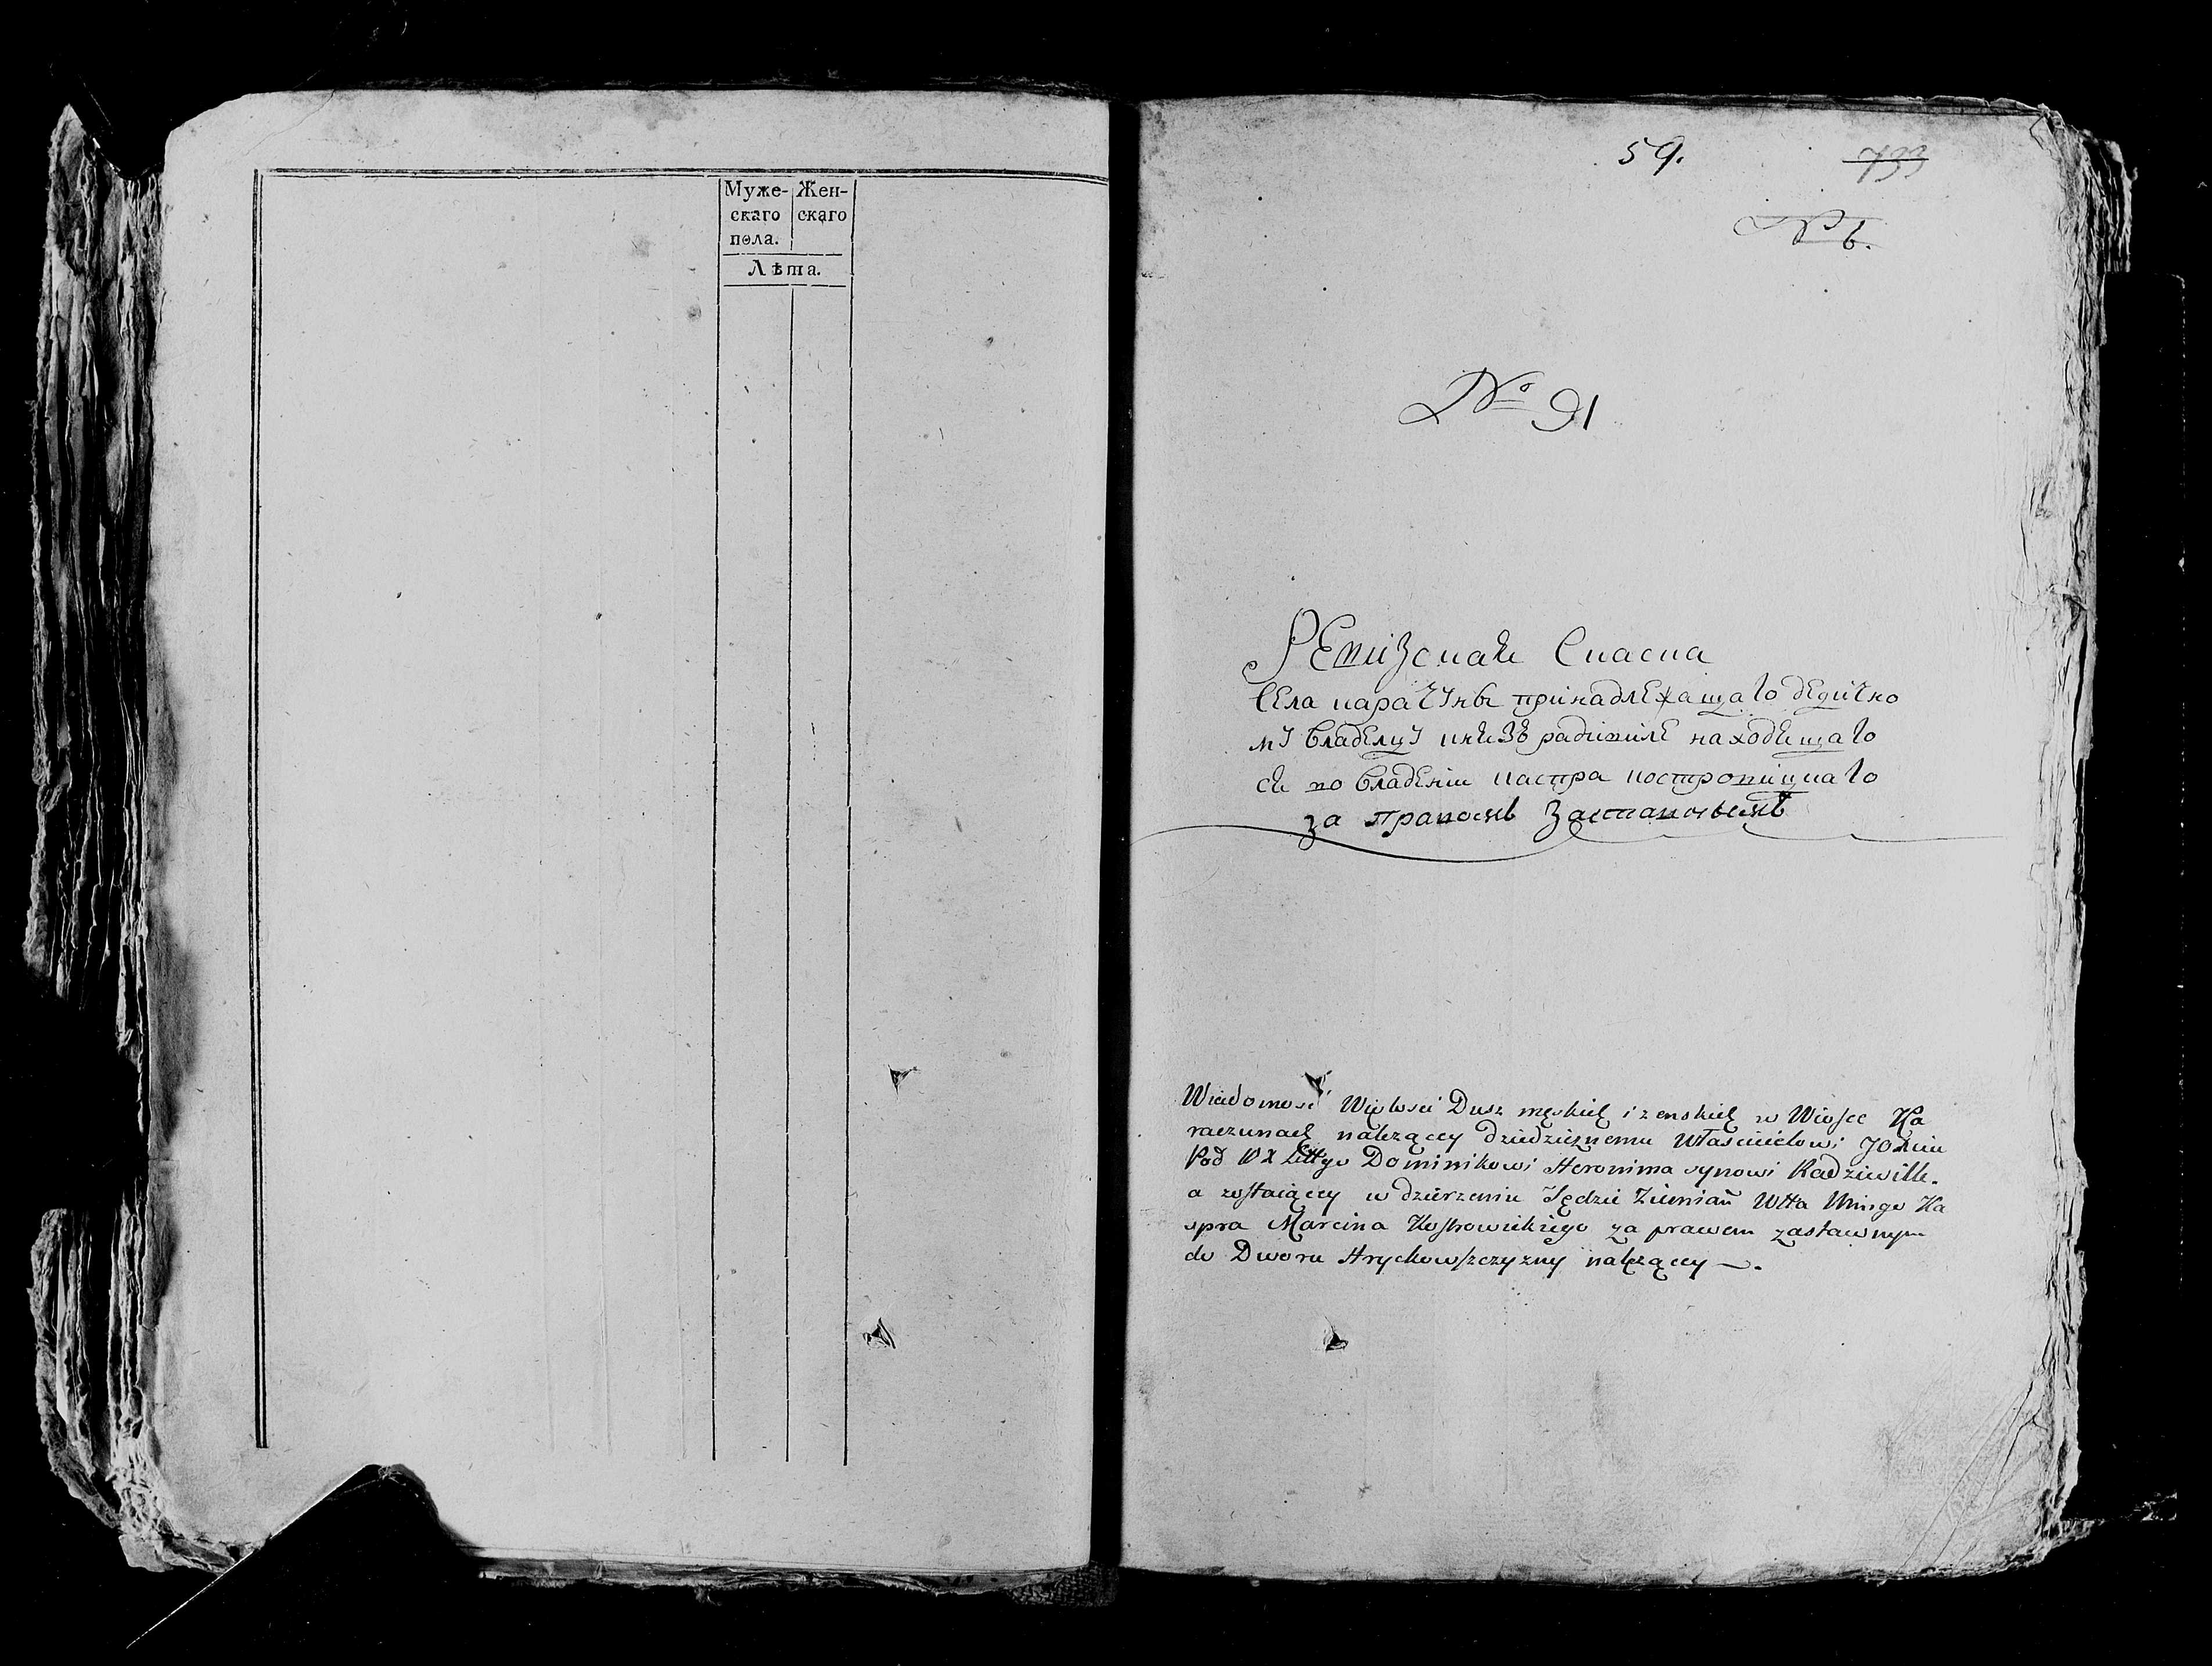 Муже- Жен-
скаго скаго
пола.
Лѣта.
59.
733
№ 6.
№ 91
Ревизская Скаска
села карачунъ принадлежащаго дедично
му владелцу князю радивилѣ находящаго
ся во владении каспра костровицкаго
за правомъ заставнымъ
Wiadomosć Wielosci Dusz męskich i zenskich w Wiosce Ka
raczunach należącey dziedzicznemu Właścicielowi JO Xciu
Pod WX Littgo Dominikowi Heronima synowi Radziwiłł.
a zostaiącey w dzierzeniu Sędzie Ziemiań Wtta Mingo Ka
spra Marcina Kostrowickiego za prawem zastawnym
do Dworu Hryckowszczyzny należącey —.